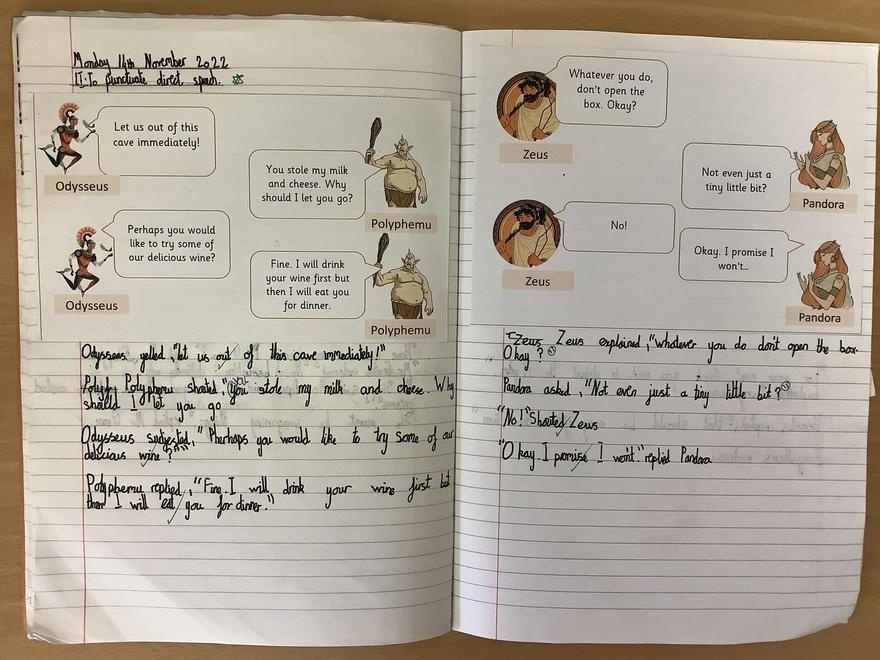 Monday 14th November 2022
LI: To punctuate direct speech.
Let us out of this
cave immediately!
Odysseus
You stole my milk
and cheese. Why
should I let you go?
Polyphemu
Perhaps you would
like to try some of
our delicious wine?
Odysseus
Fine. I will drink
your wine first but
then I will eat you
for dinner.
Polyphemu
Odysseus yelled, "let us out of this cave immediately!"
Polyphy Polyphemu shouted, "You stole my milk and cheese. Why
should I let you go
Odysseus sugjested, "Pherhaps you would like to try some of our
delicious wine?"
Polyphemu replied, "Fine. I will drink your wine first but
then I will eat you for dinner."
Whatever you do,
don't open the
box. Okay?
Zeus
Not even just a
tiny little bit?
Pandora
No!
Zeus
Okay. I promise I
won't...
Pandora
"Zeus Zeus explained, "whatever you do don't open the box.
Okay?
Pandora asked, "Not even just a tiny little bit?
"No!" Shouted Zeus
"Okay. I promise I won't." replied Pandora